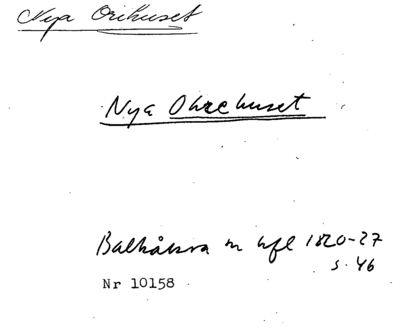 Nya Orihuset
Nya Ohrehuset
Balkåkra m hfl 1820-27
s. 46
Nr 10158